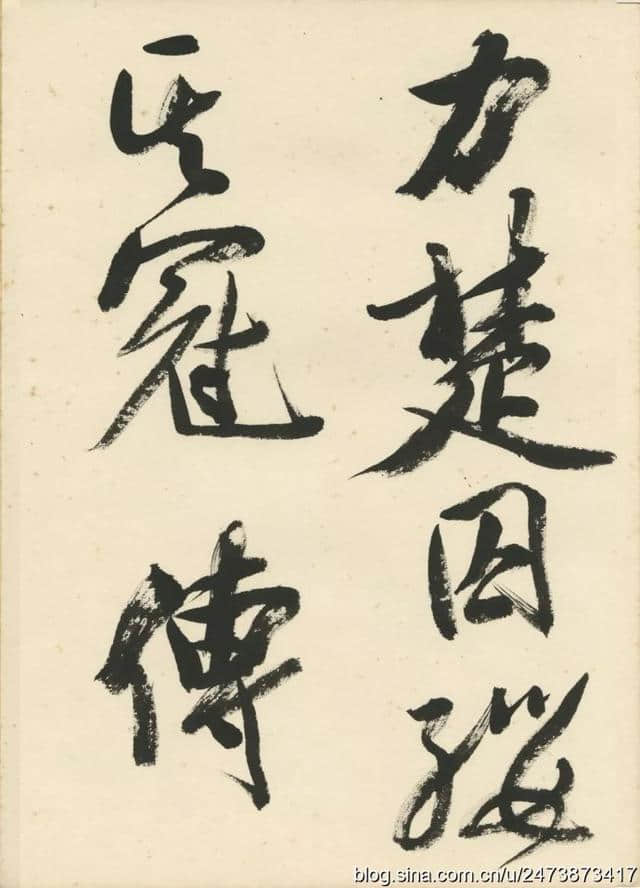 力楚囚纓
其冠傳
blog.sina.com.cn/u/2473873417